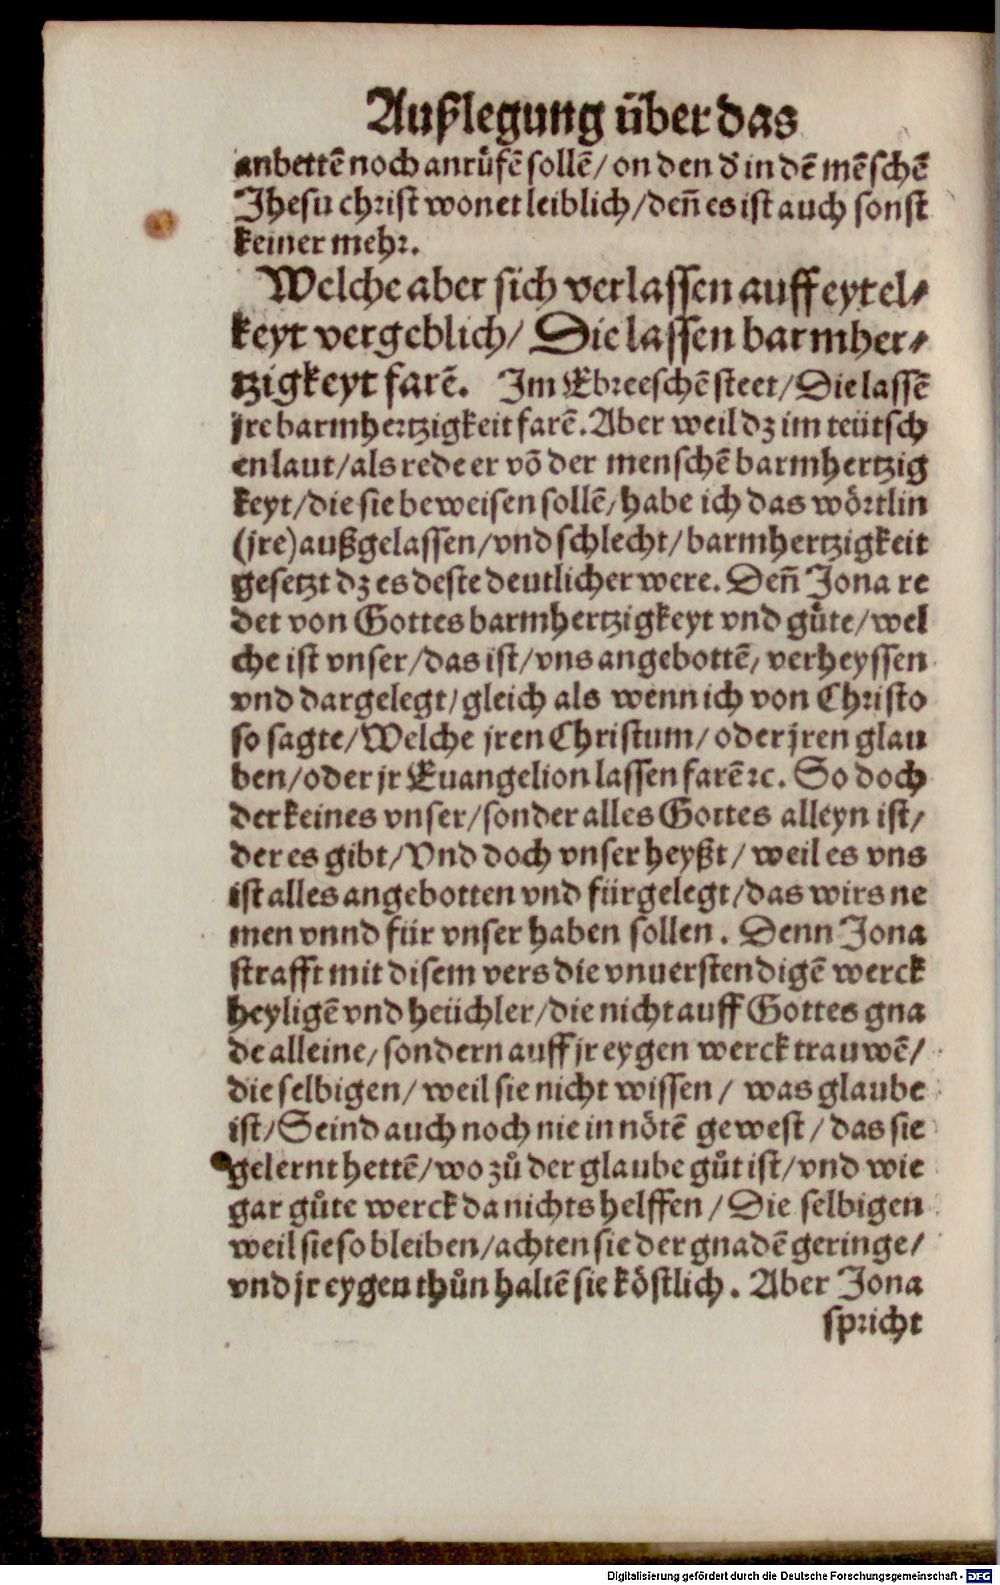 Außlegung über das
anbettē noch anrůfē sollē/ on den d' in dē mēschē
Jhesu christ wonet leiblich/ deñ es ist auch sonst
keiner mehr.
Welche aber sich verlassen auff eytel⸗
keyt vergeblich/ Die lassen barmher⸗
tzigkeyt farē. Im Ebreeschē steet/ Die lassē
jre barmhertzigkeit farē. Aber weil dz im teütsch
en laut/ als rede er võ der menschē barmhertzig
keyt/ die sie beweisen sollē/ habe ich das wörtlin
(jre) außgelassen/ vnd schlecht/ barmhertzigkeit
gesetzt dz es deste deutlicher were. Deñ Jona re
det von Gottes barmhertzigkeyt vnd gůte/ wel
che ist vnser/ das ist/ vns angebottē/ verheyssen
vnd dargelegt/ gleich als wenn ich von Christo
so sagte/ Welche jren Christum/ oder jren glau
ben/ oder jr Euangelion lassen farē ꝛc. So doch
der keines vnser/ sonder alles Gottes alleyn ist/
der es gibt/ Vnd doch vnser heyßt/ weil es vns
ist alles angebotten vnd fürgelegt/ das wirs ne
men vnnd für vnser haben sollen. Denn Jona
strafft mit disem vers die vnuerstendigē werck
heyligē vnd heüchler/ die nicht auff Gottes gna
de alleine/ sondern auff jr eygen werck trauwē/
die selbigen/ weil sie nicht wissen/ was glaube
ist/ Seind auch noch nie in nötē gewest/ das sie
gelernt hettē/ wo zů der glaube gůt ist/ vnd wie
gar gůte werck da nichts helffen/ Die selbigen
weil sie so bleiben/ achten sie der gnadē geringe/
vnd jr eygen thůn haltē sie köstlich. Aber Jona
spricht
Digitalisierung gefördert durch die Deutsche Forschungsgemeinschaft - DFG